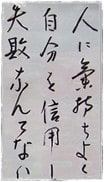 人に気持ちよく
自分を信用し
失敗なんてない